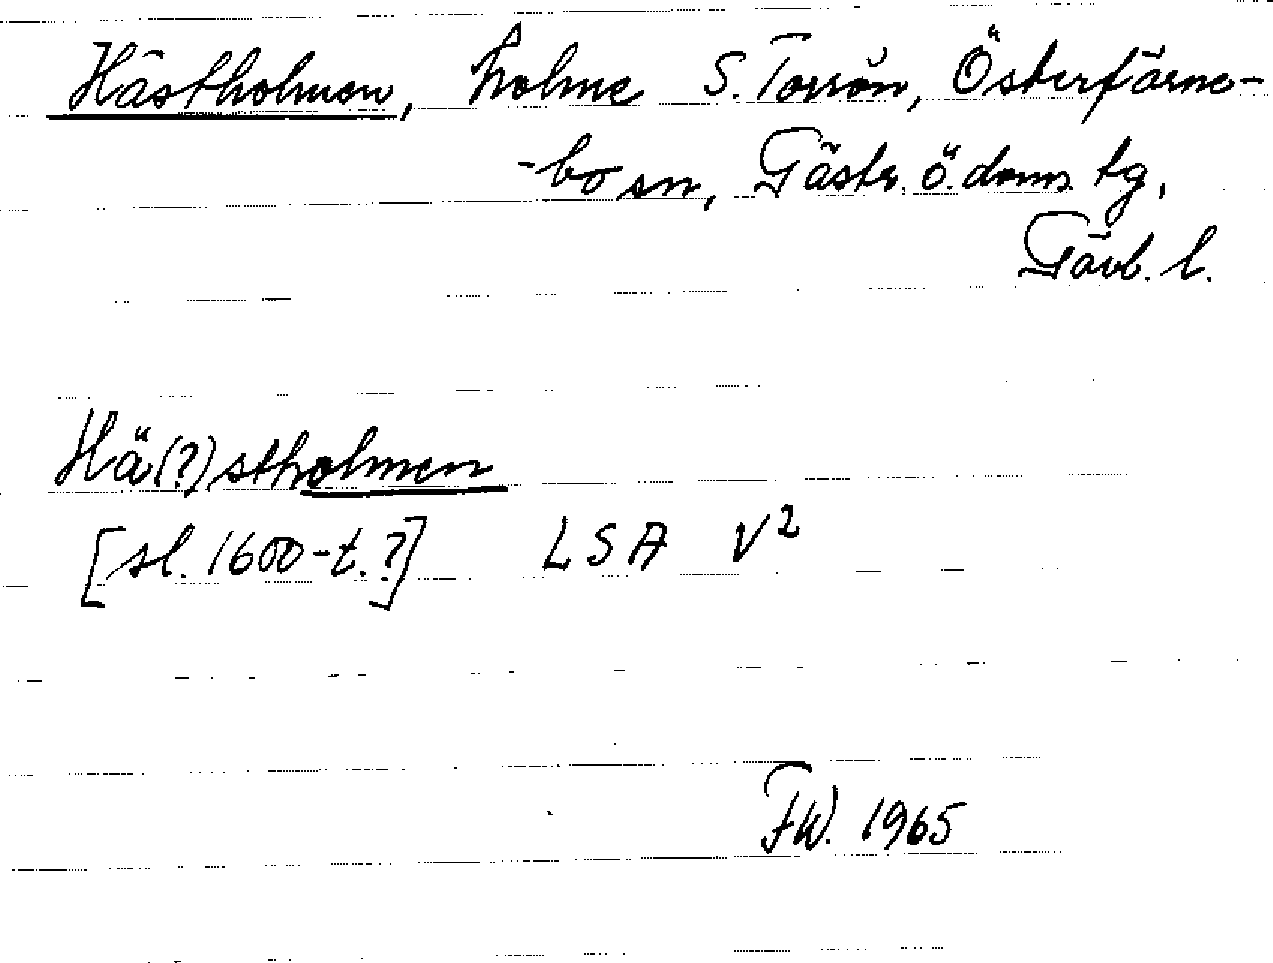 Hästholmen, holme S. Torrön, Österfärne-
-bo sn, Gästr. ö. doms tg,
Gävl. l.
Hä(?)stholmen
[sl. 1600-t.?] LSA V²
FW. 1965